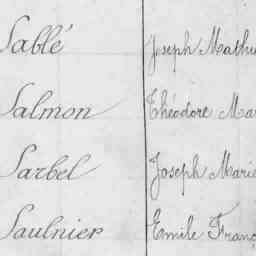 Sablé Joseph Mathu
Salmon Théodore Mar
Sarbel Joseph Marie
Saulnier Emile Franç